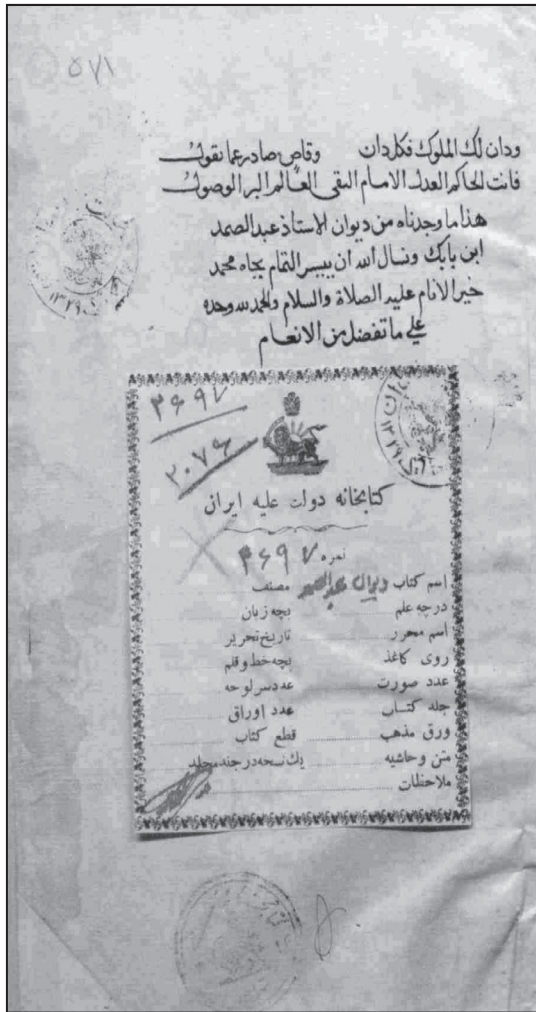 ٥٧١
ودان لك الملوك فكل دان وقاص صادر عما نقول
فانت الحاكم العدل الامام التقى العالم البر الوصول
هذا ما وجدناه من ديوان الاستاذ عبد الصمد
ابن بابك ونسال الله أن ييسر التمام بجاه محمد
خير الانام عليه الصلاة والسلام والحمد لله وحده
علي ما تفضل من الانعام
۳۶۹۷
۲۰۷۶
کتابخانه دولت علیه ایران
نمره ۳۶۹۷
اسم کتاب دیوان عبدالصمد مصنف
درچه علم بچه زبان
اسم محرر تاریخ تحریر
روی کاغذ بچه خط و قلم
عدد صورت عدد سرلوحه
جلد کتاب عدد اوراق
ورق مذهب قطع کتاب
متن وحاشیه یک نسخه در چند مجلد
ملاحظات